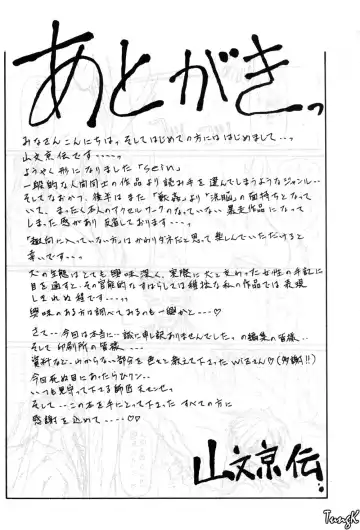 あとがきっ
みなさんこんにちはっ。そしてはじめての方にははじめまして…っ
山文京伝です……っ
ようやく形になりました「Sein」
一般的な人間同士の作品より読み手を選んでしまうようなジャンル…
そしてなおかつ、後半はまた「歓喜」より「洗脳」の面持ちとなって
いて、まったく本人のアクセルワークのなっていない暴走作品になって
しまった感があり反省しております…っ
「趣向に入っていない方」もかわりダネだと思って楽しんでいただけると
幸いです…っ
犬の生態はとても興味深く、実際に犬と交わった女性の手記に
目を通すと、その官能的なすばらしさは稚拙な私の作品では表現
しきれぬ程です…っ
興味のある方は調べてみるのも一興かと…♡
さて…今回は本当に…誠に申し訳ありませんでしたっの編集の皆様…
そして印刷所の皆様…
資料など、わからない部分を色々と教えて下さったWIZさん♡(即謝!!)
今回死ぬ目にあったらびクン…
いつも見守って下さる師匠
そして…この本を手にとって下さった すべての方に
感謝を込めて……♡♡
山文京伝
TungK